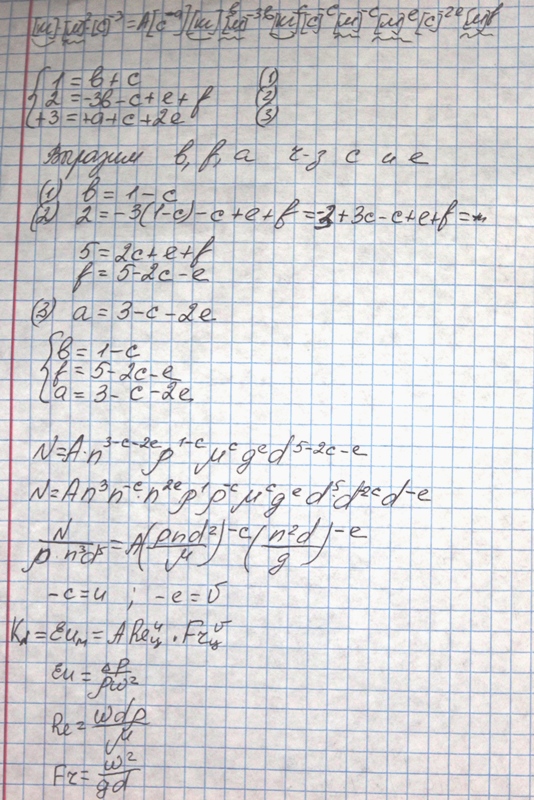 [кг]·[м]²[с]⁻³=A[c⁻ᵃ][кг]ᵇ[м]⁻³ᵇ[кг]ᶜ[с]⁻ᶜ[м]⁻ᶜ[м]ᵉ[с]⁻²ᵉ[м]ᶠ
{1 = в + с (1)
2 = -3в - с + e + f (2)
+3 = +a + c + 2e (3)
Выразим в, f, а ч-з с и е
(1) в = 1 - с
(2) 2 = -3(1-c) - c + e + f = -3 + 3c - c + e + f =
5 = 2c + e + f
f = 5 - 2c - e
(3) a = 3 - c - 2e
{в = 1 - c
f = 5 - 2c - e
a = 3 - c - 2e
N = A·n³⁻ᶜ⁻²ᵉ ρ¹⁻ᶜ μᶜ gᵉ d⁵⁻²ᶜ⁻ᵉ
N = An³n⁻ᶜ·n⁻²ᵉ ρ¹ρ⁻ᶜ μᶜ gᵉ d⁵·d⁻²ᶜ d⁻ᵉ
N/(ρ·n³d⁵) = A(ρnd²/μ)⁻ᶜ (n²d/g)⁻ᵉ
-c = u ; -e = б
Euₘ = A Reцᵘ · Frцᵛ
Eu = Δp/ρw²
Re = wdρ/μ
Fr = w²/gd